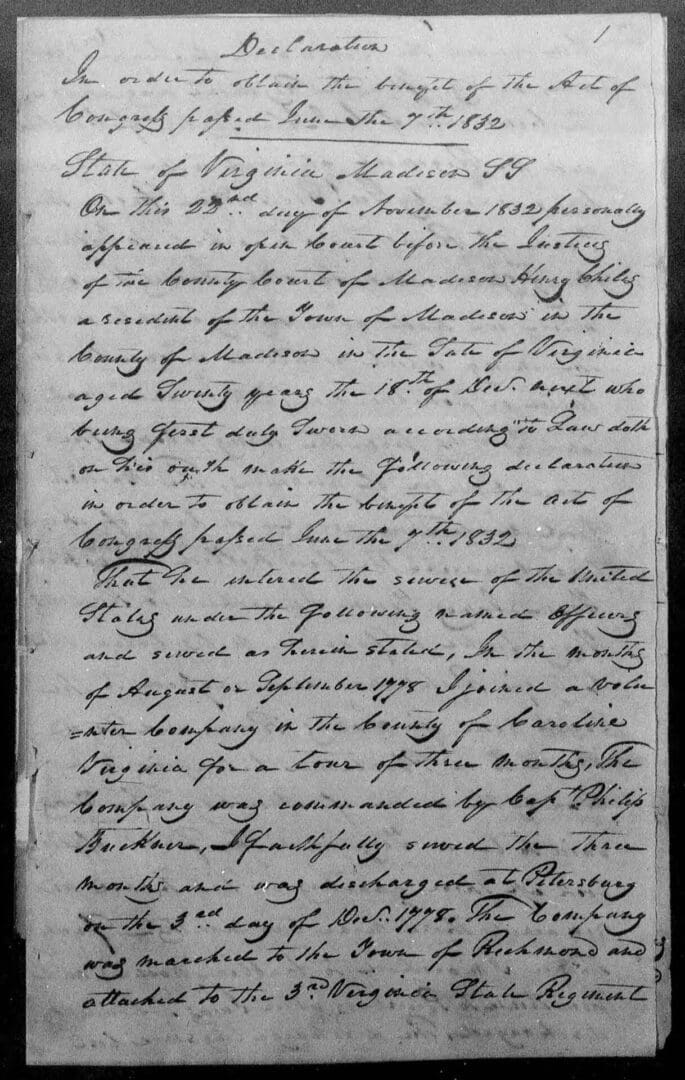 1
Declaration
In order to obtain the benefit of the Act of
Congress passed June the 7th 1832
State of Virginia Madison SS
On this 22nd day of November 1832 personally
appeared in open Court before the Justices
of the County Court of Madison Henry Chiles
a resident of the Town of Madison in the
County of Madison in the State of Virginia
aged Seventy years the 18th of Decr. next who
being first duly Sworn according to Law doth
on his oath make the following declaration
in order to obtain the benefit of the act of
Congress passed June the 7th 1832
That he entered the service of the United
States under the following named Officers
and served as herein stated, In the months
of August or September 1778 I joined a volu
=nter Company in the County of Caroline
Virginia for a tour of three months, The
Company was commanded by Capt. Philip
Buckner, I faithfully served the three
months and was discharged at Petersburg
on the 3rd day of Decr. 1778. The Company
was marched to the Town of Richmond and
attached to the 3rd Virginia State Regiment